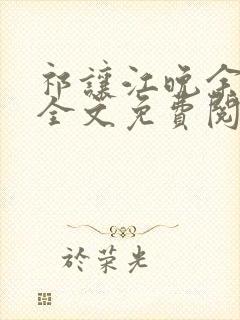 祁讓江晚余
全文免費閱
於荣光